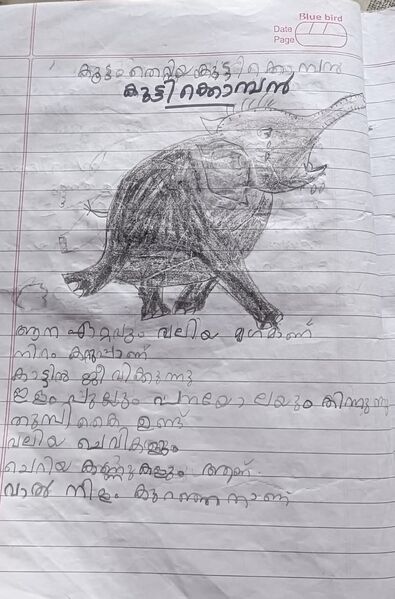 Blue bird
Date
Page
കൂട്ടം തെറ്റിയ കുട്ടിക്കൊമ്പൻ
കുട്ടിക്കൊമ്പൻ
ആന ഏറ്റവും വലിയ മൃഗമാണ്
നിറം കറുപ്പാണ്
കാട്ടിൽ ജീവിക്കുന്നു
ഇളം പുല്ലും പനയോലയും തിന്നുന്നു
തുമ്പികൈ ഉണ്ട്
വലിയ ചെവികളും
ചെറിയ കണ്ണുകളും ആണ്.
വാൽ നീളം കുറഞ്ഞതാണ്